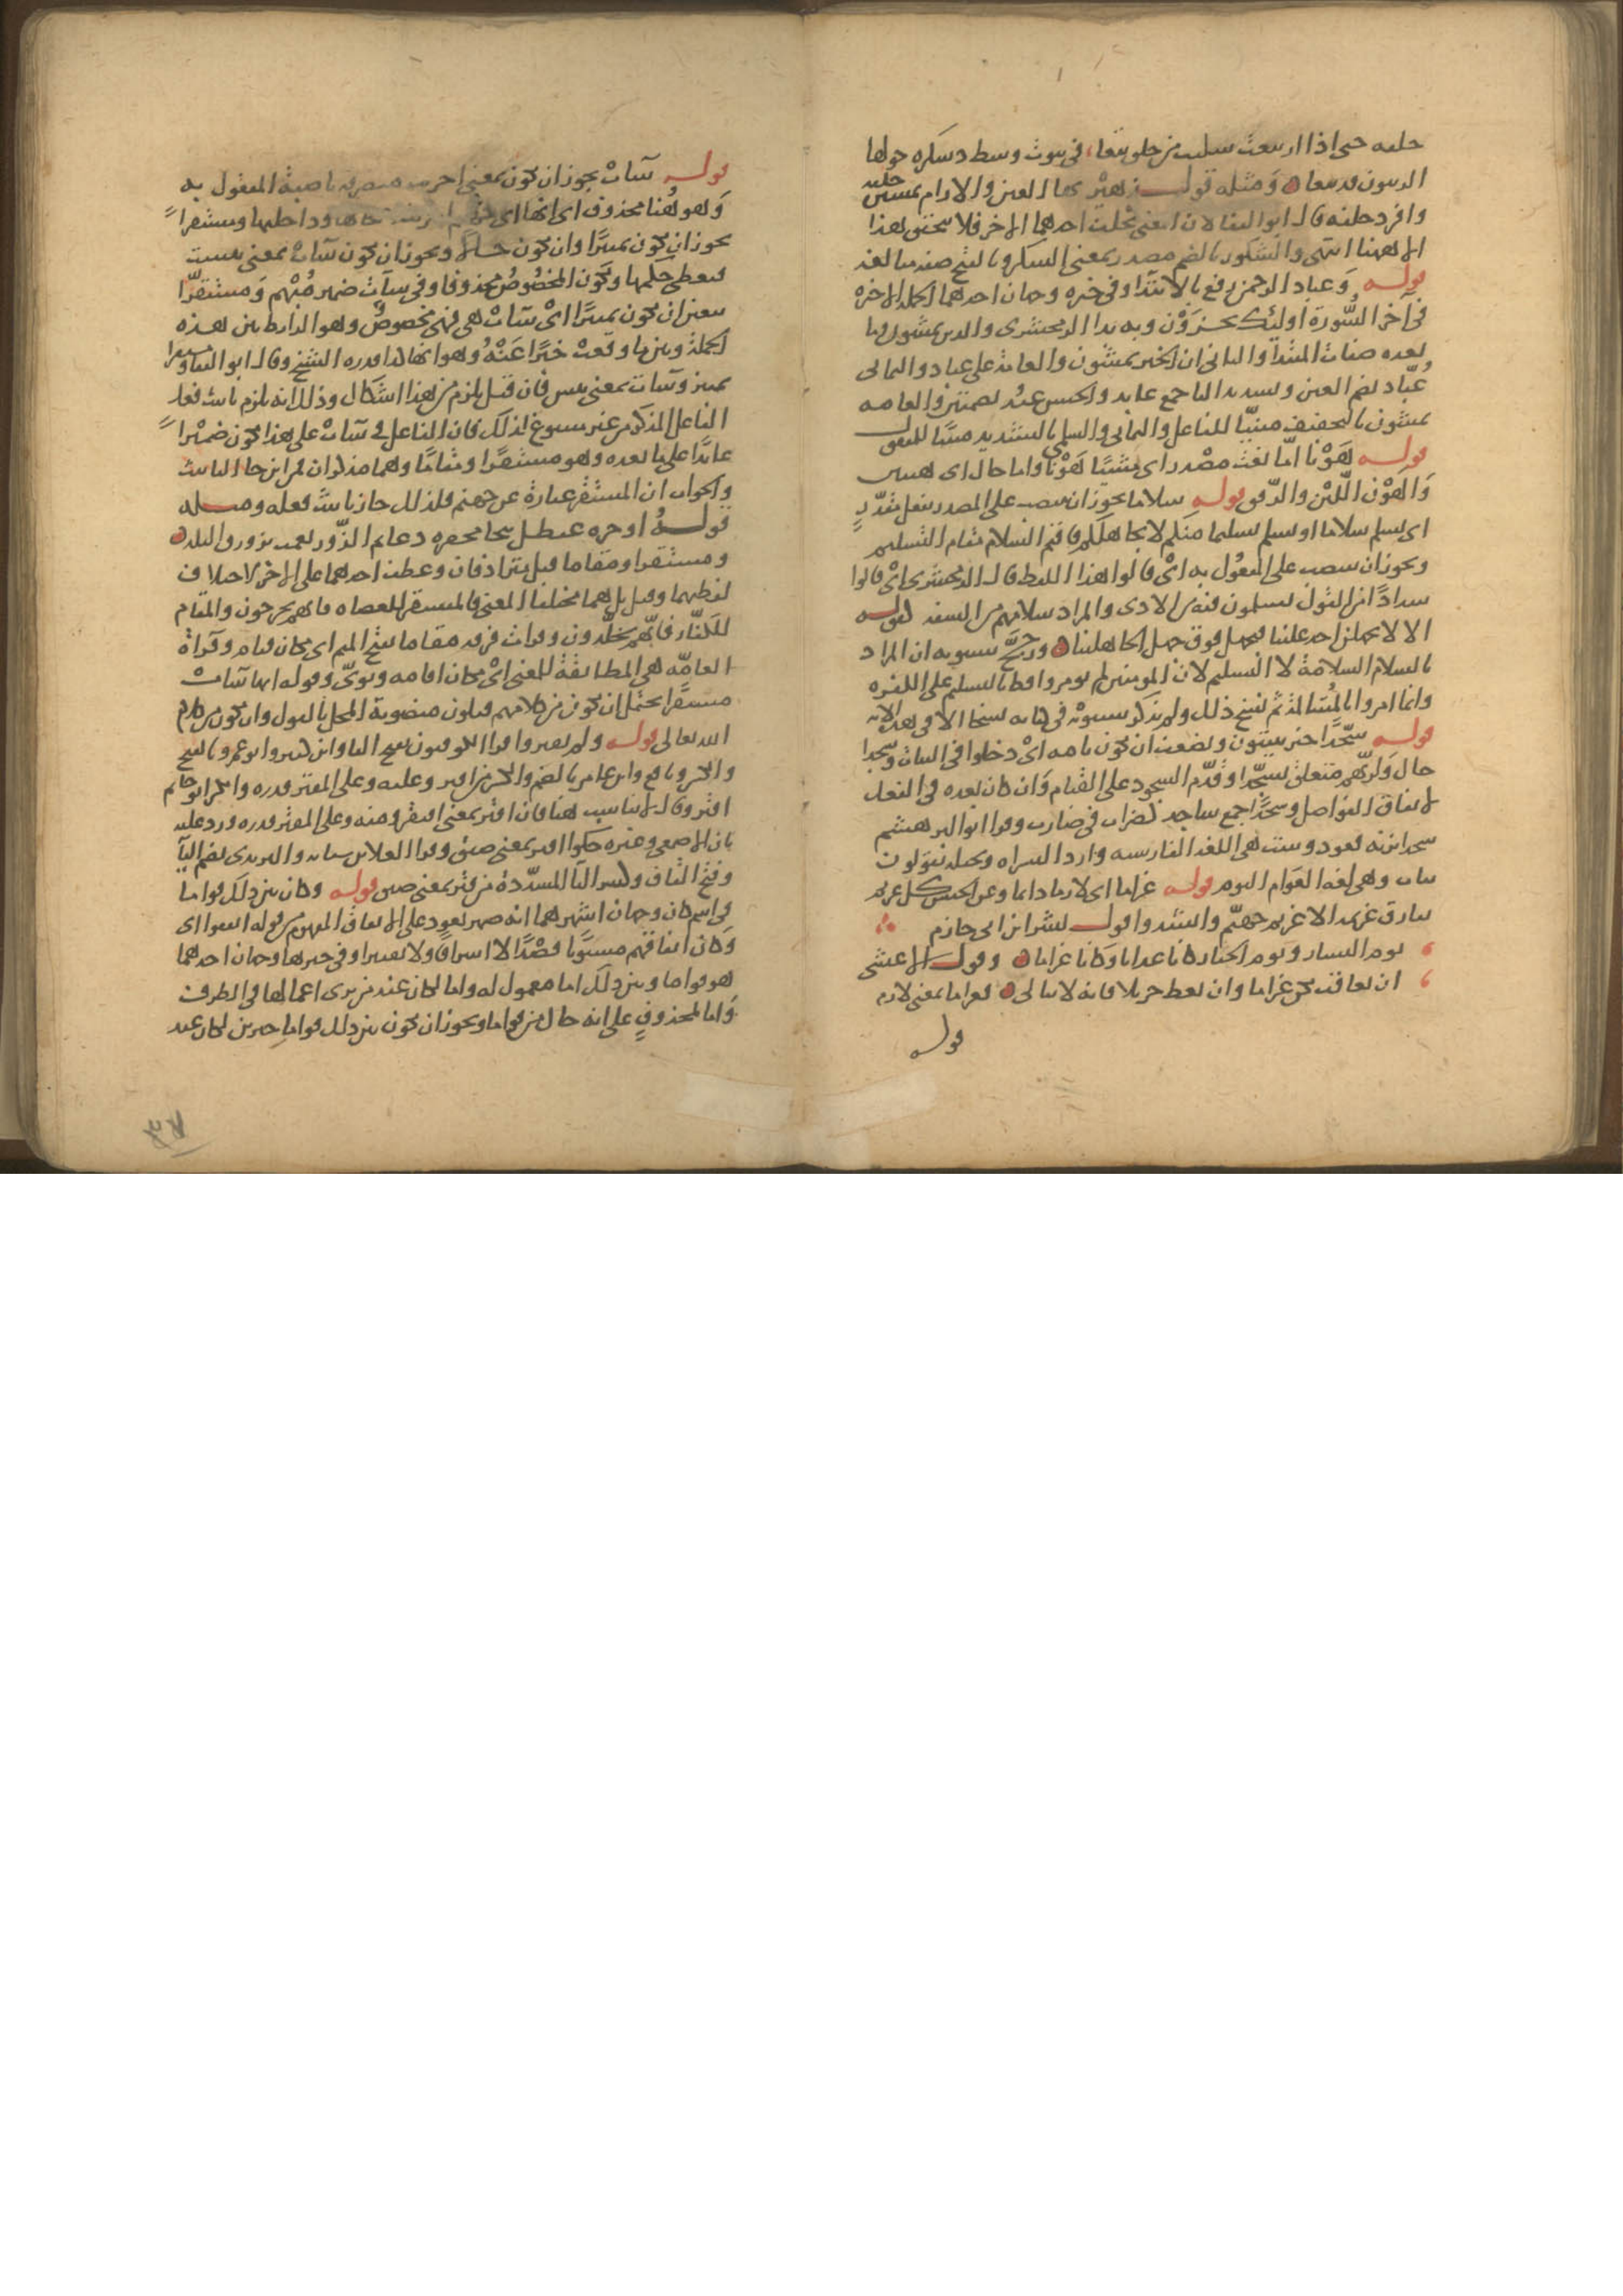 خلفه حتى اذا ارتبعت سكنت من جلق بيعا في بيوت وسط دسكرة حولها
الزيتون قد ينعا ومثله قول زهير بها العين والارام يمشين خلفة
وافرد خلفة قال ابو البقا لان المعنى يخلف احدهما الاخر فلا يتحقق هذا
الا هنا انتهى والشكور بالضم مصدر بمعنى الشكر وبالفتح صفة مبالغة
قوله وعباد الرحمن رفع بالابتداء وفي خبره وجهان احدهما الجملة الاخيرة
في آخر السورة اوليك يجزون وبه بدا الزمخشري والذين يمشون وما
بعده صفات المبتدا والثاني ان الخبر يمشون والعامة على عباد واليماني
عُبّاد بضم العين وتشديد البا جمع عابد والحسن عبد بضمتين والعامة
يمشون بالتخفيف مبنيا للفاعل واليماني والسلمي بالتشديد مبنيا للمفعول
قوله هَوْنا امّا نعت مصدر اي مشيًا هَوْنا واما حال اى هينين
وَالهَوْن اللّيْن والرّفق قوله سلاما يجوز ان ينتصب على المصدر بفعل مقدّر
اى نسلم سلاما او نسلم تسليما منكم لا نجاهلكم فاقيم السلام مقام التسليم
ويجوز ان ينتصب على المفعول به اىْ قالوا هذا اللفظ قال الزمخشرى اىْ قالوا
سدادًا من القول يسلمون فيه من الاذى والمراد سلامتهم من السفه كقوله
الا لا يجهلن احد علينا فنجهل فوق جهل الجاهلينا ورجّح سيبويه ان المراد
بالسلام السلامة لا التسليم لان المومنين لم يومروا قط بالتسليم على الكفرة
وانما امروا بالمسالمة ثم نسخ ذلك ولم يذكر سيبويه في كتابه نسخا الا في هذه الاية
قوله سجّدًا خبر يبيتون ويضعف ان تكون تامه اىْ دخلوا في البيات وسجدا
حال وَلربّهم متعلق بسجّدا وقُدّم السجود على القيام وَان كان بعده في الفعل
لاتفاق الفواصل وسجّدًا جمع ساجد كضراب في ضارب وقرا ابو البرهشيم
سجدا بزنة قعود وبيت هي اللغة الفاشيه وازد السراه وبجيله يقولون
يبات وهي لغة العوام اليوم قوله غراما اى لازما دائما وعن الحسن كل غريم
يفارق غريمه الا غريم جهنّم وانشدوا قول بشر ابن ابي حازم
يوم النسار ويوم الجفار كانا عذابا وكانا غراما وقول الاعشى
ان يعاقب يكن غراما وان يعط جزيلا فانه لا يبالى فغراما بمعنى لازم
قوله
قوله سآت يجوز ان تكون بمعنى احزنت فتكون متصرفه ناصبة المفعول به
وَهو هُنا محذوف اى انها اى جهنم احزنت اصحابها وداخليها ومستقرًا
يجوز ان تكون تمييزًا وان تكون حالًا ويجوز ان تكون سآت بمعنى بيست
فتعطى حكمها ويكون المخصوص محذوفا وفي سآت ضمير مُبْهم وَمستقرّا
يتعين ان يكون تمييزًا اىْ سآتْ هي فهى مخصوصٌ وهو الرابط بين هذه
الجملة وبين ما وقعت خبرًا عَنْهُ وهو انها كذا قدره الشيخ وقال ابو البقا ومستقرا
تمييز وسآت بمعنى بيس فان قيل يلزم من هذا اشكال وذلك انه يلزم تانيث فعل
الفاعل المذكر من غير مسوغ لذلك فان الفاعل في سآت على هذا يكون ضميْرًا
عايدًا على ما بعده وهو مستقرًا ومقامًا وهما مذكران فمن اين جا التانيث
والجواب ان المستقر عبارة عن جهنم فلذلك جاز تانيث فعله ومثله
قولهُ او حره عيطل ثبجا مجفره دعايم الزّور نعمت زورق البلد
ومستقرا ومقاما قيل مترادفان وعطف احدهما على الاخر لاختلاف
لفظهما وقيل بل هما مختلفا المعنى فالمستقر للعصاه فانهم يخرجون والمقام
للكفّار فانّهم يخلّدون وقرات فرقه مقاما بفتح الميم اى مكان قيام وقرآة
العامّه هي المطابقة للمعنى اىْ مكان اقامه وثويّ وقوله انها سآت
مستقرًا يحتمل ان تكون من كلامهم فتكون منصوبة المحل بالقول وان تكون من كلام
الله تعالى قوله ولم يقتروا قرا الكوفيون بفتح اليا وابن كثير وابو عمرو بالفتح
والكسر ونافع وابن عامر بالضم والكسر من اقتر وعليه وعلى المقتر قدره وانكر ابو حاتم
اقتر وقال لا يناسب هنا فان اقتر بمعنى افتقر ومنه وعلى المقتر قدره ورد عليه
بان الاصمعى وغيره حكوا اقتر بمعنى ضيق وقرا العلا بن سيابه واليزيدى بضم اليآ
وفتح القاف وكسر التآ المشدّدة من قتر بمعنى ضيق قوله وكان بين ذلك قواما
في اسم كان وجهان اشهرهما انه ضمير يعود على الانفاق المفهوم من قوله انفقوا اى
وَكان انفاقهم مستويًا قصْدًا لا اسرافا ولا تقتيرا وفي خبرها وجهان احدهما
هو قواما وبين ذلك اما معمول له واما لكان عند من يرى اعمالها في الظرف
وَاما لمحذوف على انه حال من قواما ويجوز ان يكون بين ذلك قواما خبرين لكان عند